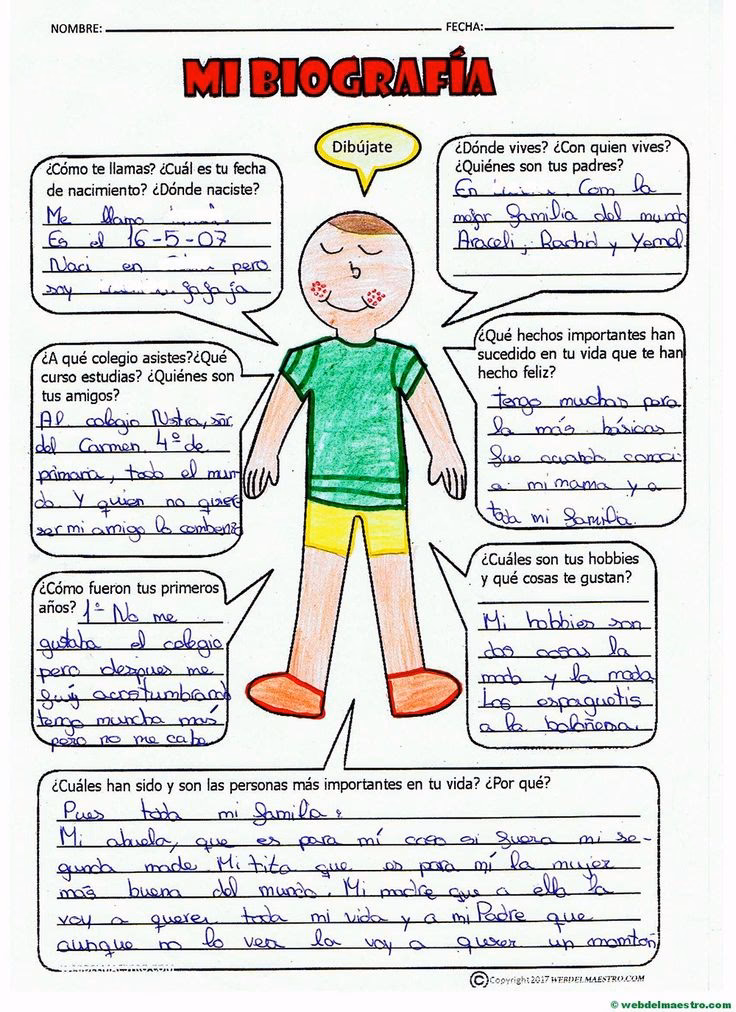 NOMBRE:
FECHA:
MI BIOGRAFÍA
Dibújate
¿Cómo te llamas? ¿Cuál es tu fecha
de nacimiento? ¿Dónde naciste?
Me llamo
Es el 16-5-07
Naci en pero
soy jajajaja
¿Dónde vives? ¿Con quien vives?
¿Quiénes son tus padres?
En Com la
mejor familia del mundo
Araceli, Rachid y
¿A qué colegio asistes?¿Qué
curso estudias? ¿Quiénes son
tus amigos?
Al colegio Nstra, sñr
del Carmen 4º de
primaria, todo el mun
do. Y quien no quiere
ser mi amigo lo combenzo
¿Qué hechos importantes han
sucedido en tu vida que te han
hecho feliz?
tengo muchas pero
la más básicas
fue cuando conoci
a mi mama y a
toda mi familia.
¿Cómo fueron tus primeros
años? 1º No me
gustaba el colegio
pero despues me
fuy acostumbrando
tengo muncha más
pero no me cabe
¿Cuáles son tus hobbies
y qué cosas te gustan?
Mi hobbies son
dos cosas la
moda y la moda
Los espaguetis
a la boloñesa.
¿Cuáles han sido y son las personas más importantes en tu vida? ¿Por qué?
Pues toda mi familia:
Mi abuela, que es para mí como si fuera mi se-
gunda made. Mi tita que es para mí la mujer
más buena del mundo. Mi madre que a ella la
voy a querer toda mi vida y a mi Padre que
aunque no lo vea la voy a querer un montoń
WEBDELMAESTRO.COM
©Copyright 2017 WEBDELMAESTRO.COM
© webdelmaestro.com